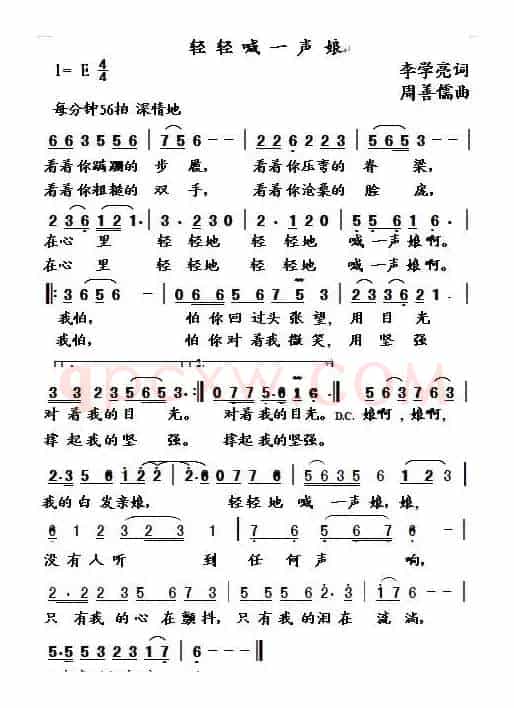 轻轻喊一声娘
1= E 4/4
李学亮词
周善儒曲
每分钟56拍 深情地
6 6 3 5 5 5 6 | 7 5 6 - - | 2 2 6 2 2 2 3 | 7 5 6 - - |
看着你蹒跚的 步 履, 看着你压弯的 脊 梁,
看着你粗糙的 双 手, 看着你沧桑的 脸 庞,
2 3 6 1 2 1 · | 3 · 2 3 0 | 2 · 1 2 0 | 5 5 6 1 6 - |
在心 里 轻 轻地 轻 轻地 喊 一声 娘啊。
在心 里 轻 轻地 轻 轻地 喊 一声 娘啊。
‖: 3 6 5 6 - | 0 6 6 5 6 7 5 3 | 2 3 3 3 6 · |
我怕, 怕 你 回 过 头 张 望, 用 目 光
我怕, 怕 你 对 着 我 微 笑, 用 坚 强
1. 2.
3 3 2 3 5 6 5 3 · | 0 7 7 5 · 6 1 6 · | 5 6 3 7 6 3 |
对 着 我 的 目 光。 对着 我 的目光。 D.C. 娘啊,娘啊,
撑 起 我 的 坚 强。 撑起 我 的坚强。
2 · 3 5 6 1 2 · | 2 · 0 0 7 7 6 | 5 6 3 5 6 1 2 3 |
我的 白 发亲娘, 轻轻地 喊 一声 娘, 娘,
6 1 2 3 2 3 1 | 7 6 5 6 7 6 |
没 有 人 听 到 任 何 声 响,
2 · 2 3 5 5 6 7 6 | 5 · 5 3 5 6 1 2 · 3 | 1 7 6 - |
只 有 我 的 心 在 颤抖, 只 有 我 的 泪 在 流 淌,
5 · 5 5 3 2 3 1 7 | 6 - - - ‖